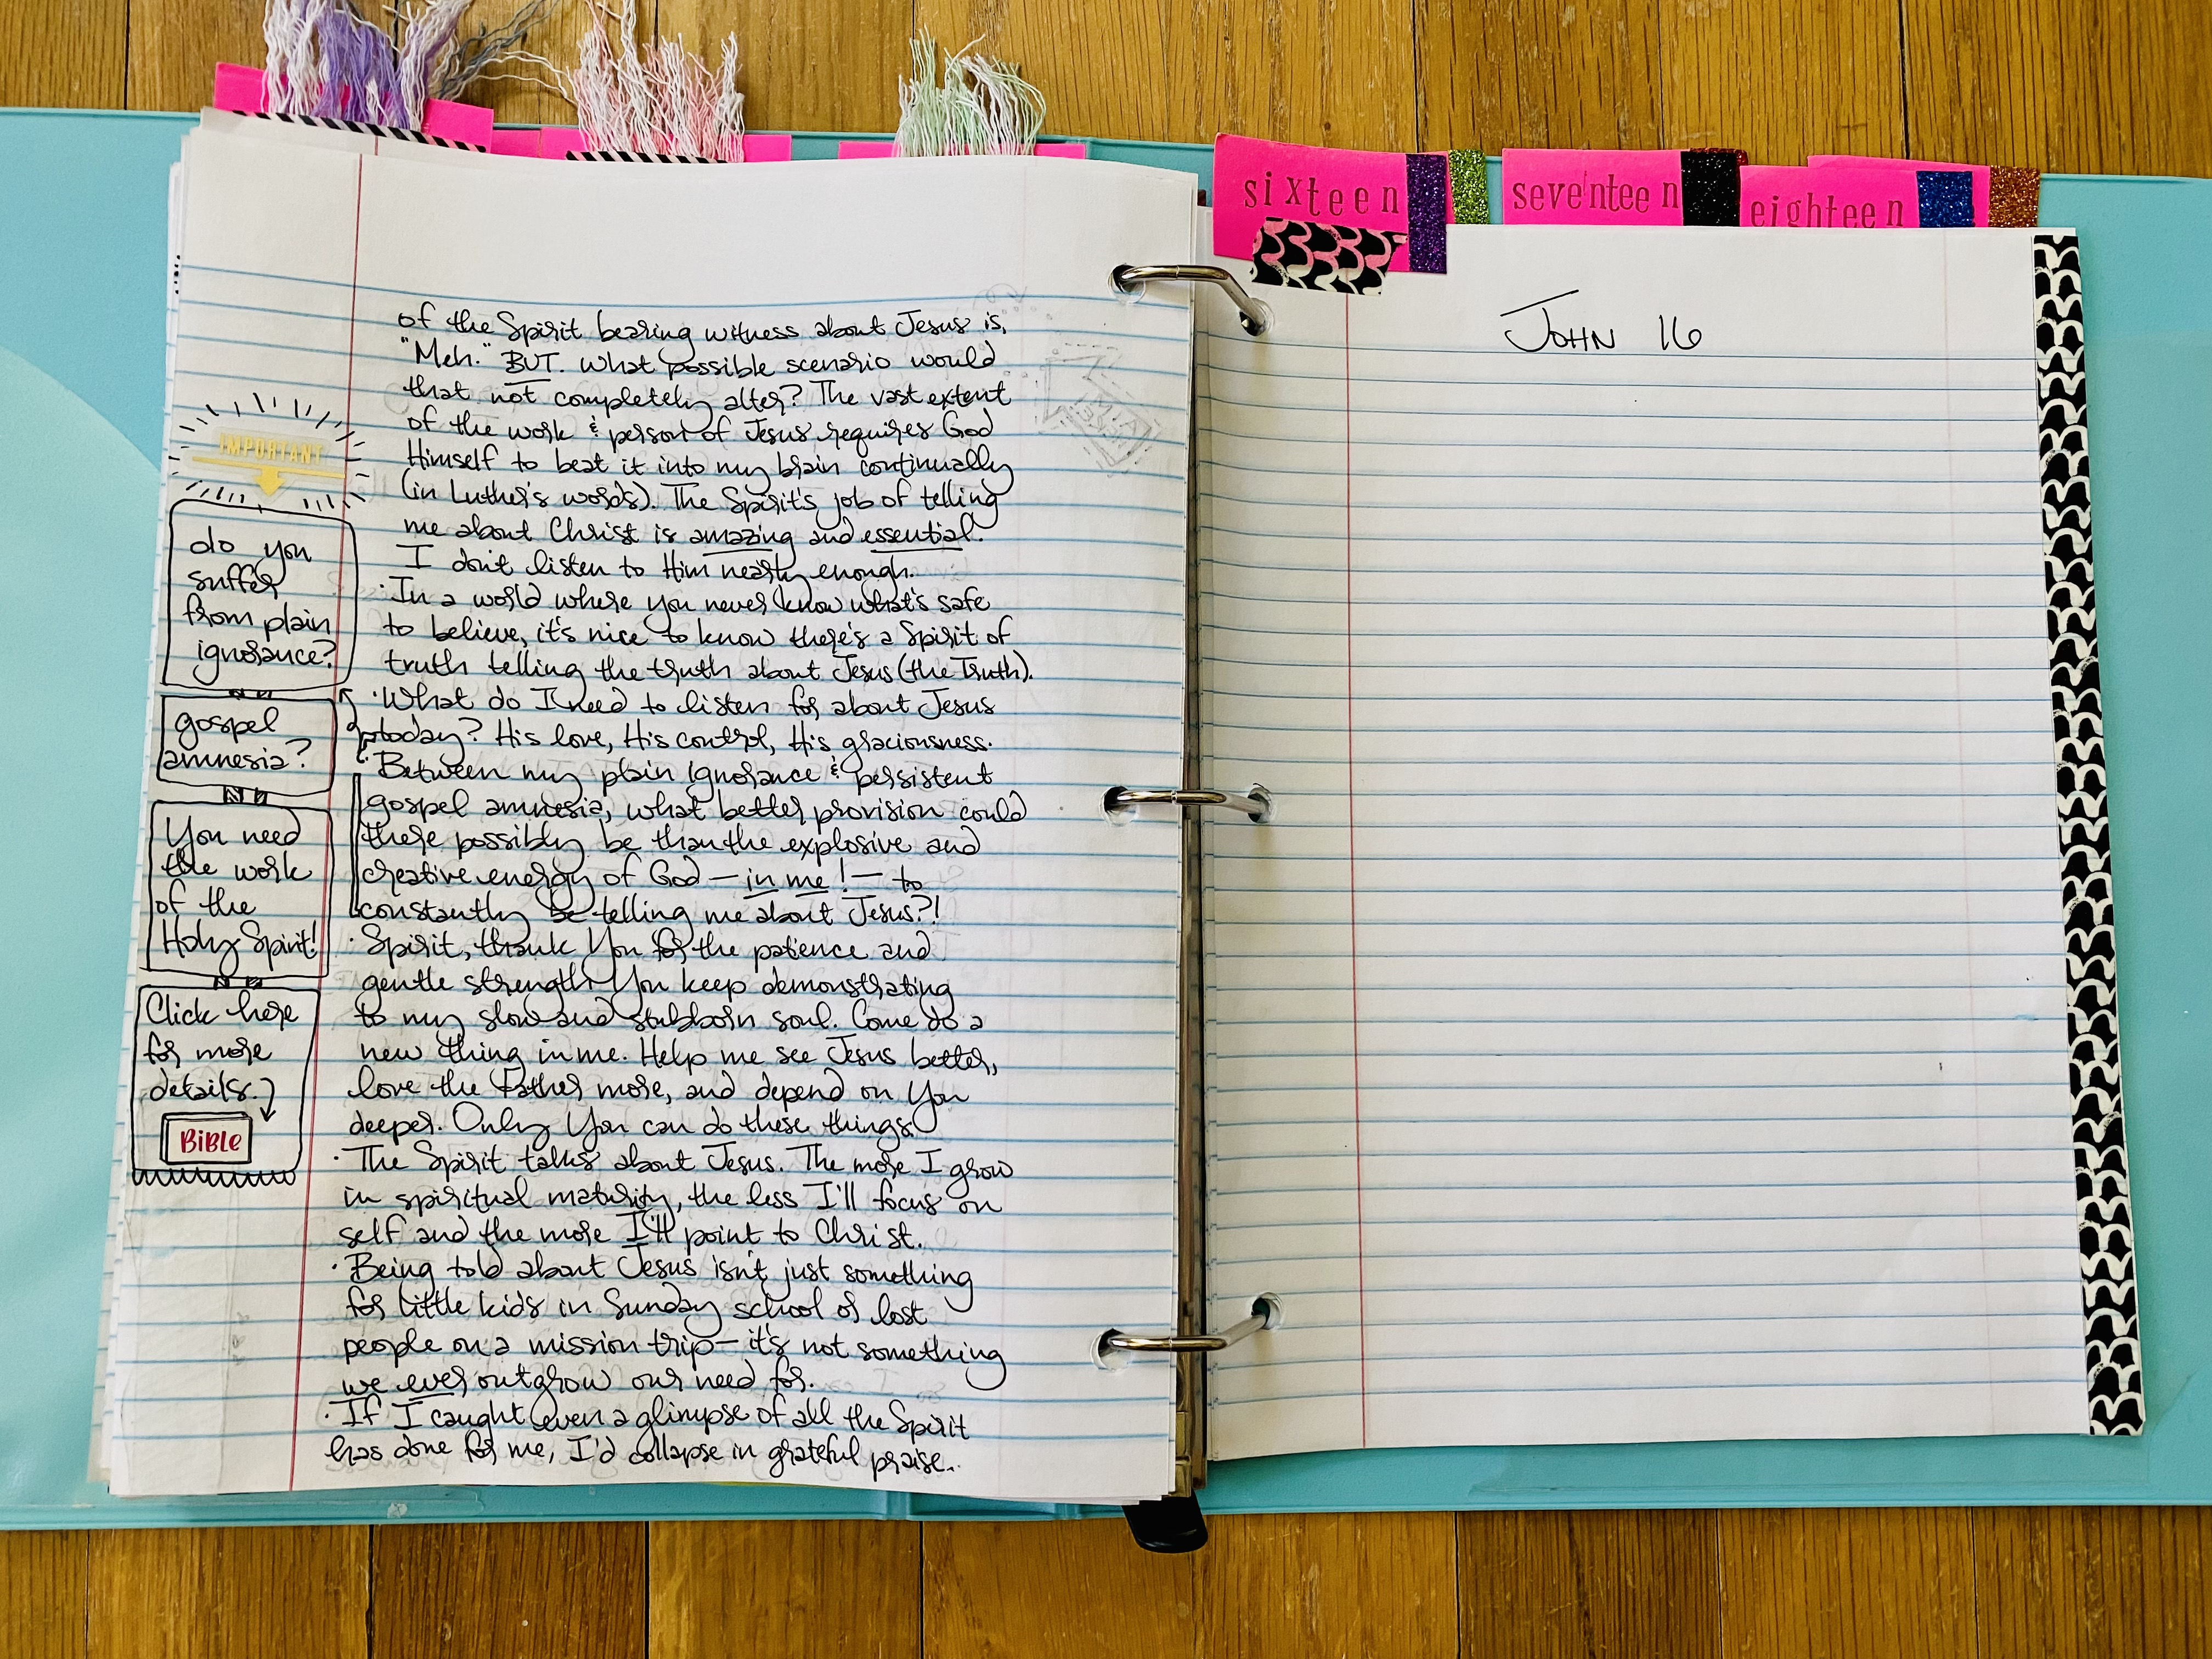 of the Spirit bearing witness about Jesus is,
"Meh." BUT. What possible scenario would
that not completely alter? The vast extent
of the work & person of Jesus requires God
Himself to beat it into my brain continually
(in Luther's words). The Spirit's job of telling
me about Christ is amazing and essential.
I don't listen to Him nearly enough.
· In a world where you never know what's safe
to believe, it's nice to know there's a Spirit of
truth telling the truth about Jesus (the Truth).
· What do I need to listen for about Jesus
today? His love, His control, His graciousness.
· Between my plain ignorance & persistent
gospel amnesia, what better provision could
there possibly be than the explosive and
creative energy of God — in me! — to
constantly be telling me about Jesus?!
· Spirit, thank You for the patience and
gentle strength You keep demonstrating
to my slow and stubborn soul. Come do a
new thing in me. Help me see Jesus better,
love the Father more, and depend on You
deeper. Only You can do these things.
· The Spirit talks about Jesus. The more I grow
in spiritual maturity, the less I'll focus on
self and the more I'll point to Christ.
· Being told about Jesus isn't just something
for little kids in Sunday school or lost
people on a mission trip — it's not something
we ever outgrow our need for.
· If I caught even a glimpse of all the Spirit
has done for me, I'd collapse in grateful praise.
IMPORTANT
do you
suffer
from plain
ignorance?
gospel
amnesia?
You need
the work
of the
Holy Spirit!
Click here
for more
details.
BiBLe
sixteen
seventeen
eighteen
JOHN 16